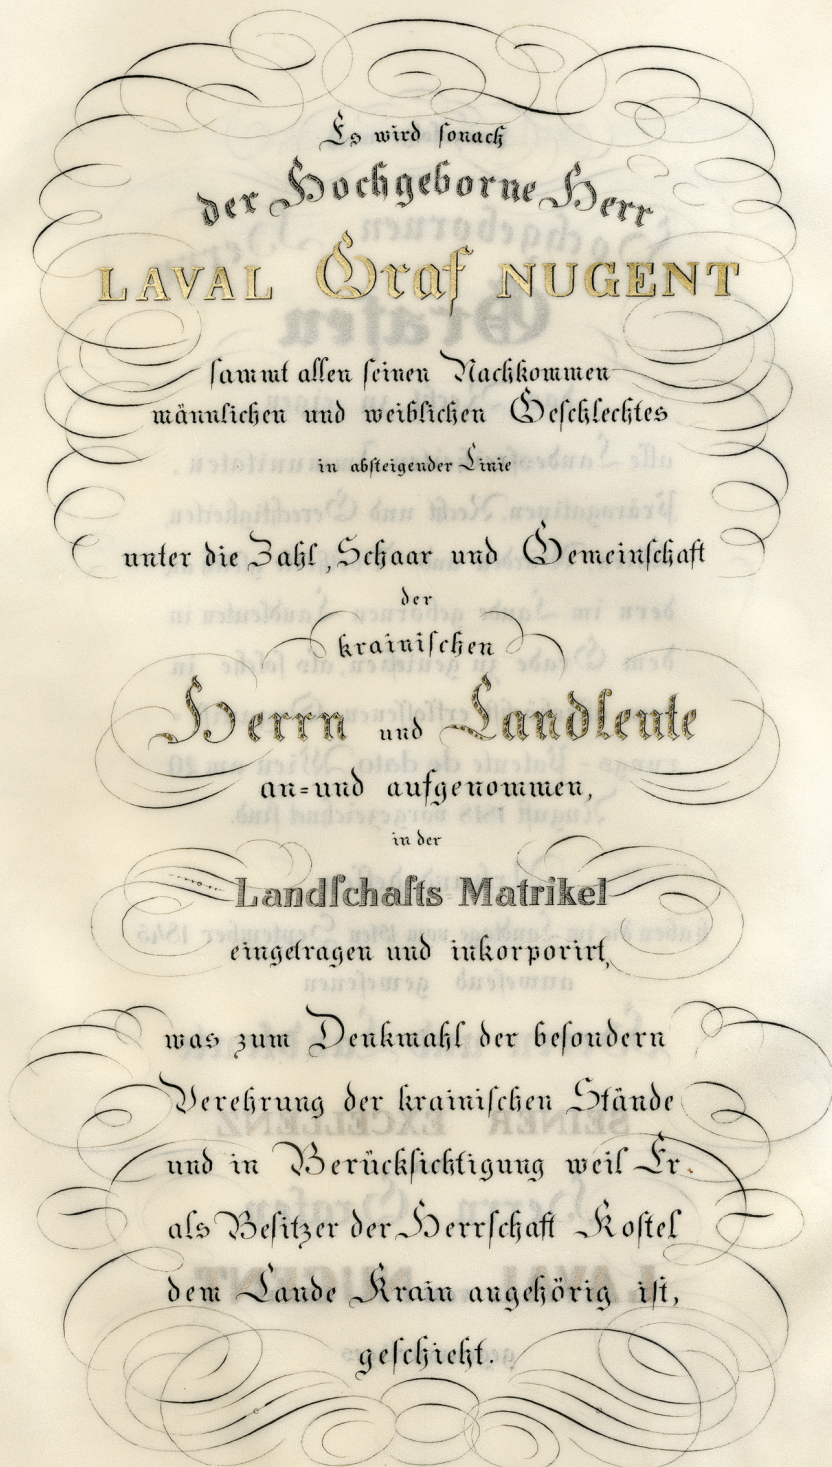 Es wird sonach
der Hochgeborne Herr
LAVAL Graf NUGENT
sammt allen seinen Nachkommen
männlichen und weiblichen Geschlechtes
in absteigender Linie
unter die Zahl, Schaar und Gemeinschaft
der
krainischen
Herrn und Landleute
an= und aufgenommen,
in der
Landschafts Matrikel
eingetragen und inkorporirt,
was zum Denkmahl der besondern
Verehrung der krainischen Stände
und in Berücksichtigung weil Er.
als Besitzer der Herrschaft Kostel
dem Lande Krain angehörig ist,
geschieht.